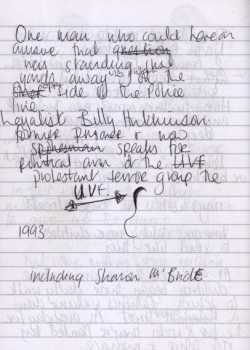 One man who could have an
answer that question
was standing just
yards away on the
side of the Police
line.
Loyalist Billy Hutchinson
former prisoner & now
spokesman speaks for
political arm of the UVF
protestant terror group the
UVF.
1993
including Sharon McBride